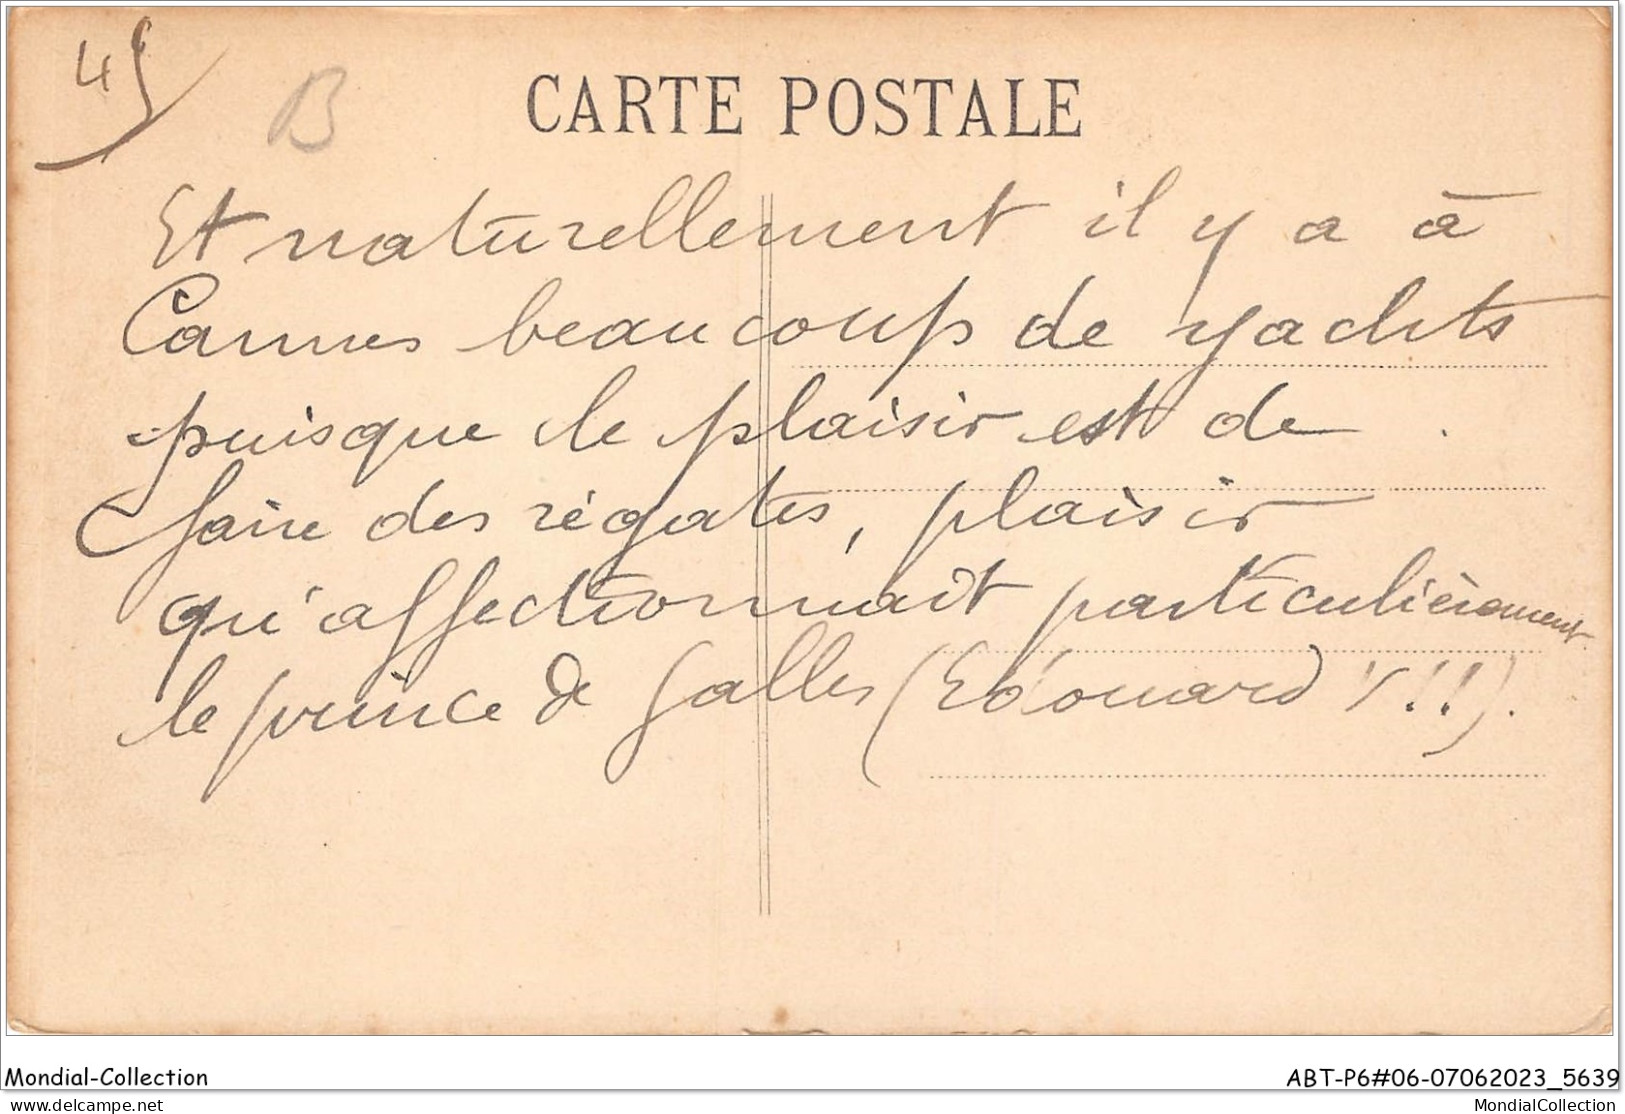 45
B
CARTE POSTALE
Et naturellement il y a à
Cannes beaucoup de yachts
puisque le plaisir est de
faire des régates, plaisir
qu'affectionnait particulièrement
le prince de Galles (Edouard V!!).
Mondial-Collection
ABT-P6#06-07062023_5639
delcampe.net
MondialCollection